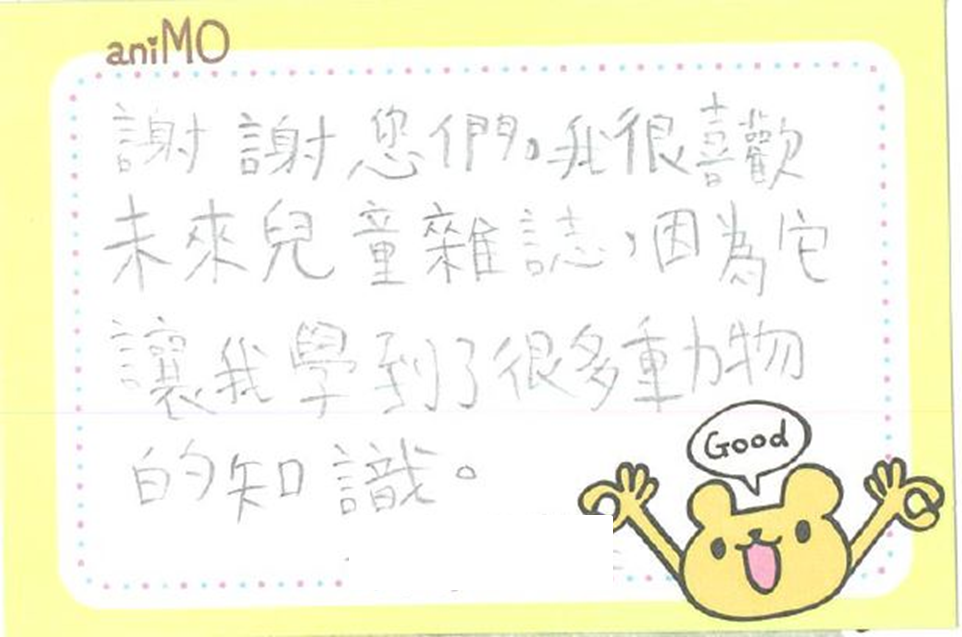 aniMO
謝謝您們,我很喜歡
未來兒童雜誌,因為它
讓我學到了很多動物
的知識。
Good